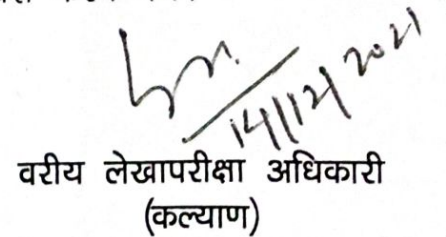 14/12/2021
वरीय लेखापरीक्षा अधिकारी
(कल्याण)